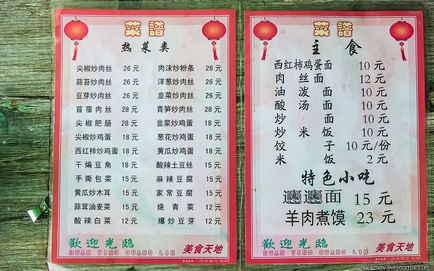 菜譜
热菜类
尖椒炒肉丝 26元 肉沫炒粉条 26元
蒜苔炒肉丝 26元 洋葱炒肉丝 26元
豆芽炒肉丝 26元 韭菜炒肉丝 26元
苜蓿肉丝 28元 青笋炒肉丝 28元
尖椒肥肠 28元 韭菜炒鸡蛋 18元
尖椒炒鸡蛋 18元 葱花炒鸡蛋 18元
西红柿炒鸡蛋 18元 黄瓜炒鸡蛋 18元
干煸豆角 18元 酸辣土豆丝 15元
手撕包菜 15元 麻辣豆腐 15元
黄瓜炒木耳 15元 家常豆腐 15元
蒜茸油麦菜 15元 烧青菜 12元
酸辣白菜 12元 爆炒豆芽 12元
歡迎光臨
HUAN YING GUANG LIN
美食天地
菜譜
主食
西红柿鸡蛋面 10元
肉丝面 12元
油泼面 10元
酸汤面 10元
炒面 10元
炒米饭 10元
饺子 10元/份
米饭 2元
特色小吃
面 15元
羊肉煮馍 23元
歡迎光臨
HUAN YING GUANG LIN
美食天地